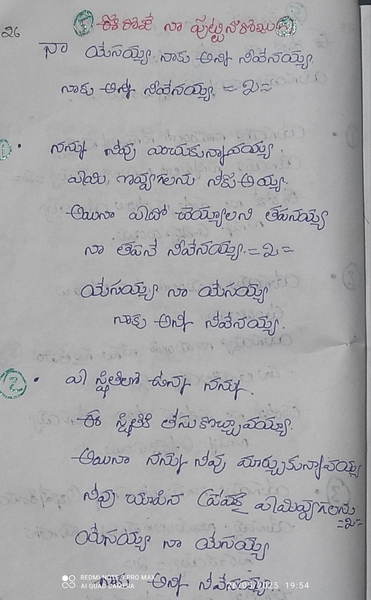 26
ఈ రోజే నా పుట్టినరోజు
నా యేసయ్య నాకు అన్ని నీవేనయ్య
నాకు అన్ని నీవేనయ్య =2=
1. నన్ను నీవు మలచుకున్నావయ్య
ఏమి ఇవ్వగలను నీకు అయ్య
అయినా ఏదో చెయ్యాలని తపనయ్య
నా తపనే నీవేనయ్య =2=
యేసయ్య నా యేసయ్య
నాకు అన్ని నీవేనయ్య.
2. ఏ స్థితిలో ఉన్న నన్ను.
ఈ స్థితికి తీసుకొచ్చావయ్యా.
అయినా నన్ను నీవు మార్చుకున్నావయ్య
నీవు చూపిన ప్రేమకై ఏమివ్వగలను =2=
యేసయ్య నా యేసయ్య
నాకు అన్ని నీవేనయ్య
REDMI NOTE 7 PRO MAX
AI QUAD CAMERA
2025 19:54